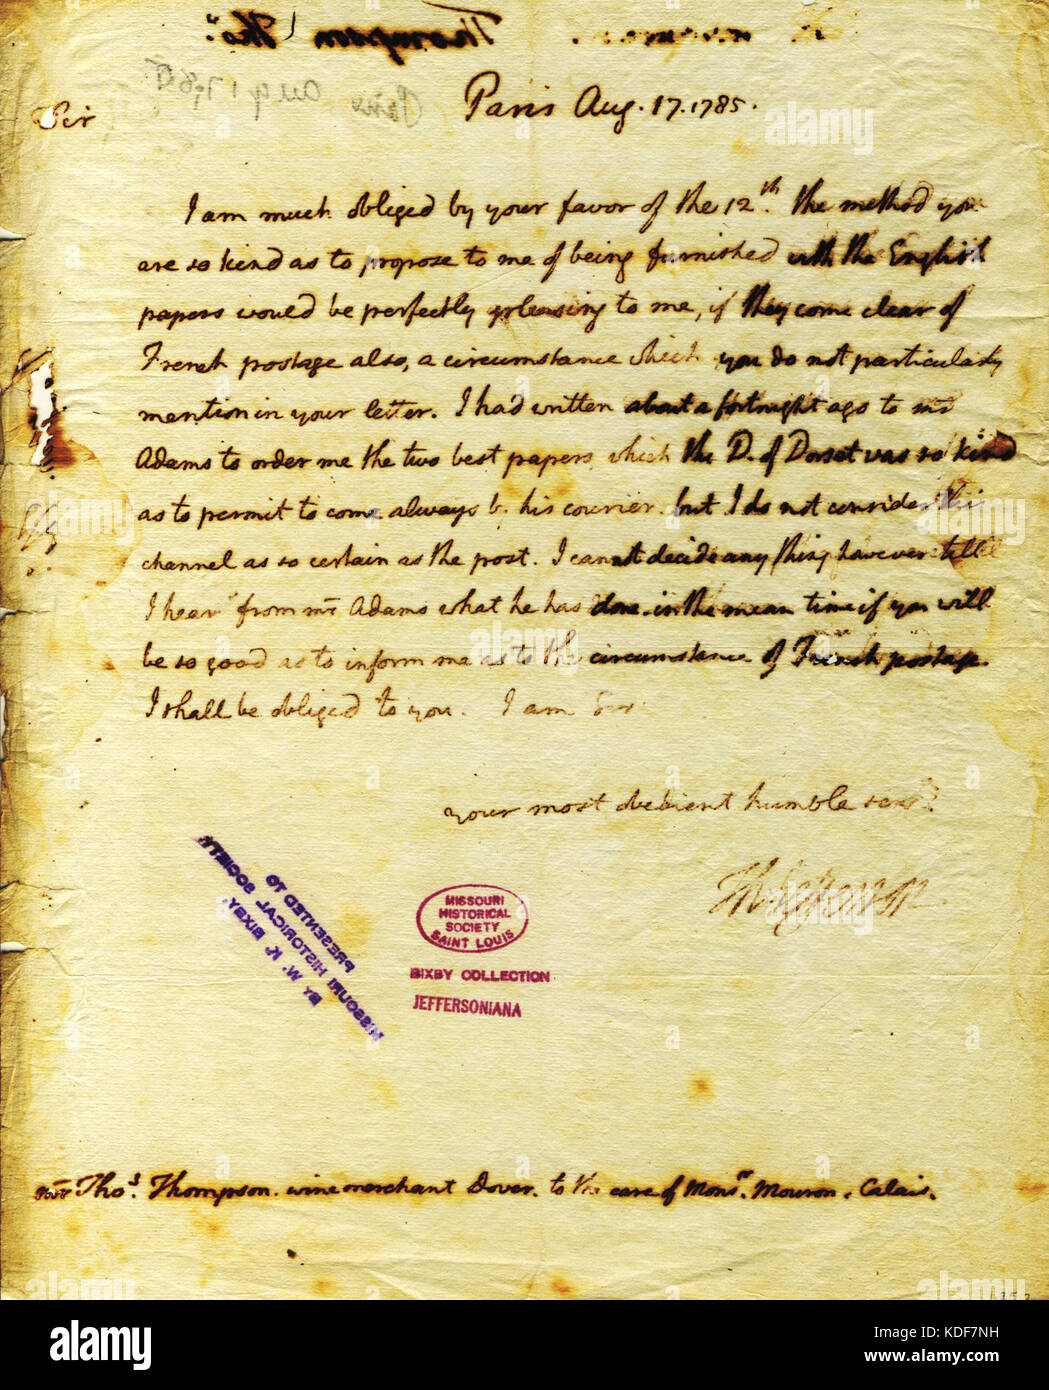 Thompson Tho.s
Paris Aug 17, 85
Paris Aug. 17. 1785.
Sir
I am much obliged by your favor of the 12th. the method you
are so kind as to propose to me of being furnished with the English
papers would be perfectly pleasing to me, if they come clear of
French postage also, a circumstance which you do not particularly
mention in your letter. I had written about a fortnight ago to mr
Adams to order me the two best papers which the D. of Dorset was so kind
as to permit to come always by his courier. but I do not consider this
channel as so certain as the post. I cannot decide any thing however till
I hear from mr Adams what he has done. in the mean time if you will
be so good as to inform me as to the circumstance of French postage.
I shall be obliged to you. I am Sir
your most obedient humble servt.
Th: Jefferson
PRESENTED TO
MISSOURI HISTORICAL SOCIETY
BY W. K. BIXBY.
MISSOURI
HISTORICAL
SOCIETY
SAINT LOUIS
BIXBY COLLECTION
JEFFERSONIANA
mr Thos. Thompson. wine merchant Dover. to the care of Monsr. Mouron. Calais.
alamy
Image ID: KDF7NH
www.alamy.com